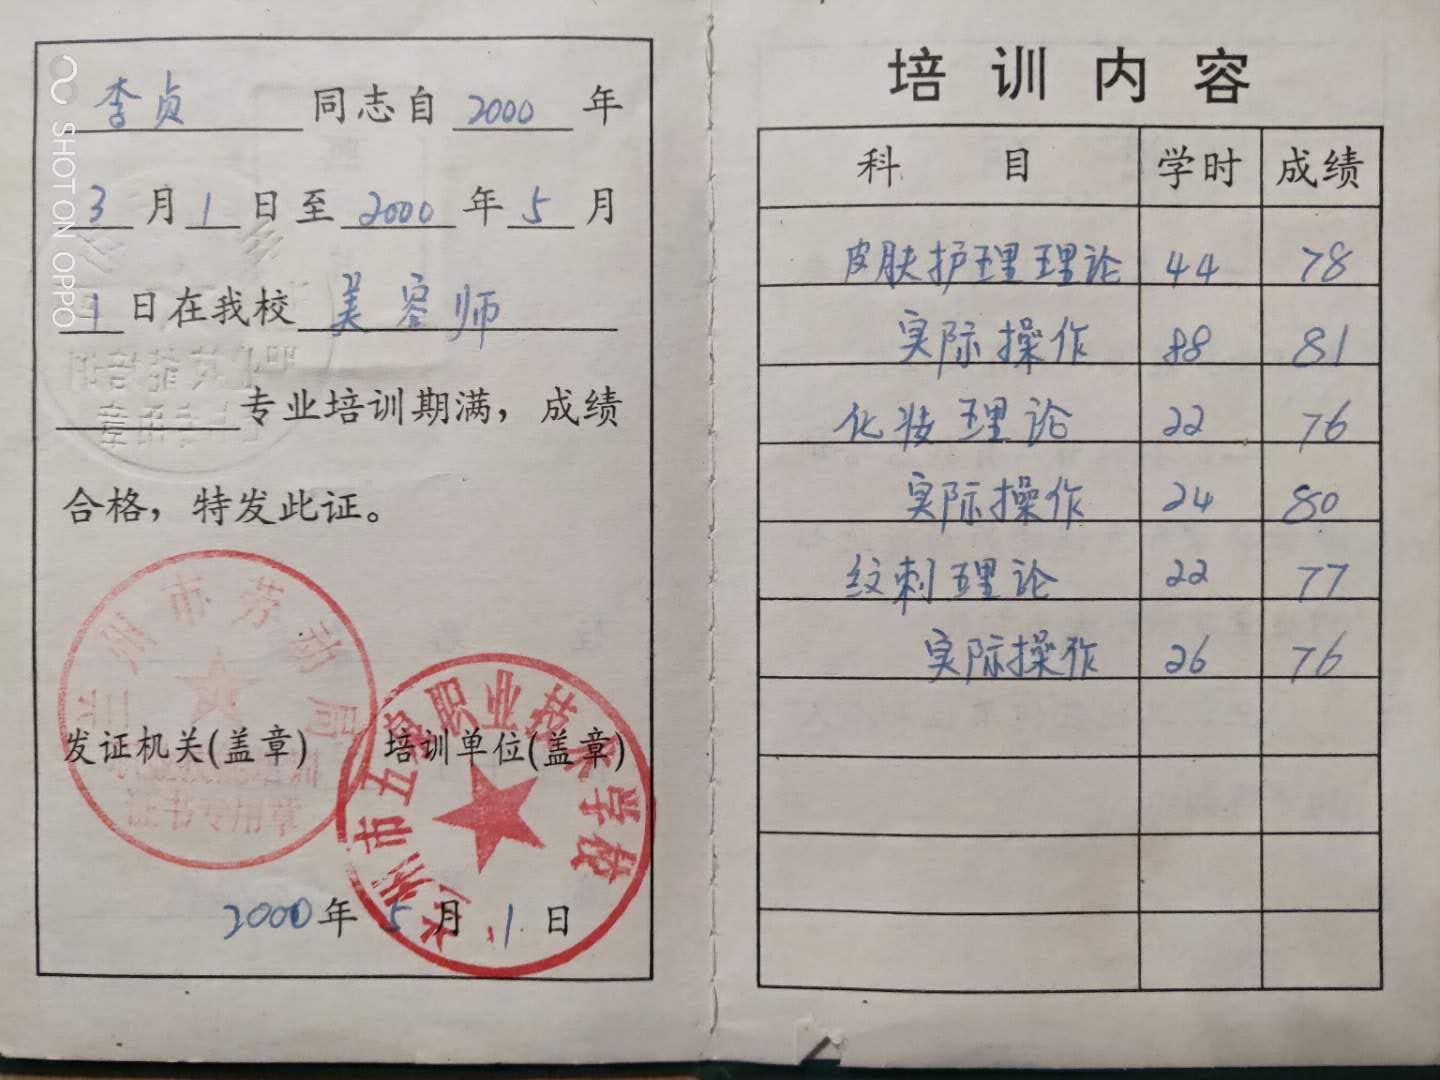 李贞 同志自 2000 年
3 月 1 日至 2000 年 5 月
1 日在我校 美容师
专业培训期满，成绩
合格，特发此证。
发证机关(盖章) 培训单位(盖章)
州市劳动局
证书专用章
州市五 职业技术学校
2000 年 5 月 1 日
SHOT ON OPPO
培训内容
科 目 学时 成绩
皮肤护理理论 44 78
实际操作 88 81
化妆理论 22 76
实际操作 24 80
纹刺理论 22 77
实际操作 26 76